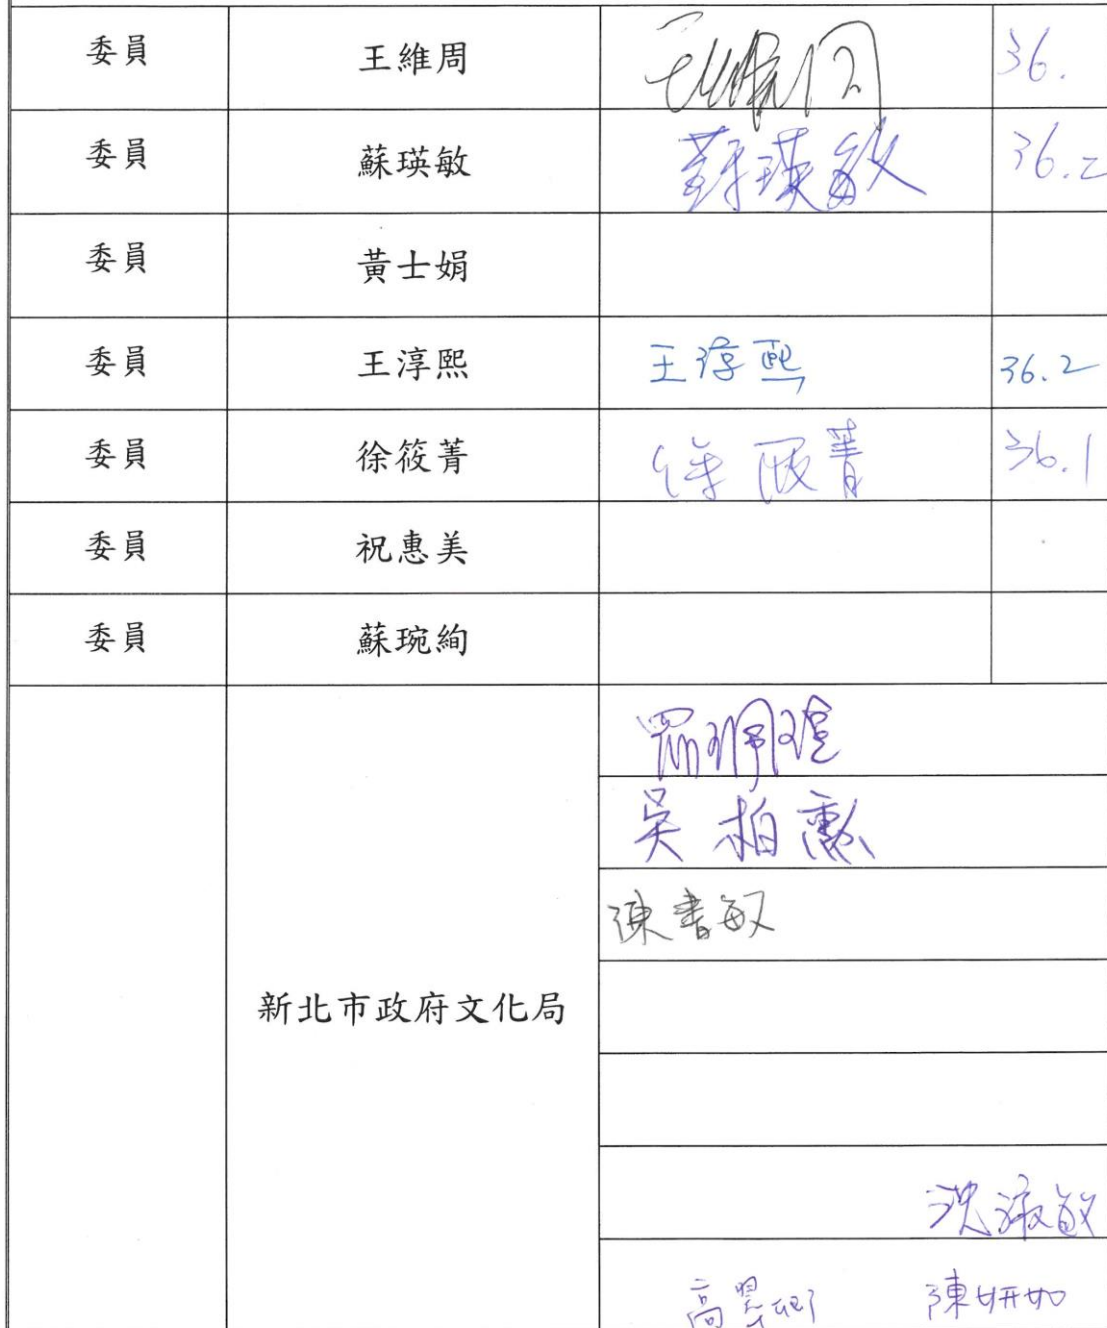 委員 王維周 王維周 36.
委員 蘇瑛敏 蘇瑛敏 36.2
委員 黃士娟
委員 王淳熙 王淳熙 36.2
委員 徐筱菁 徐筱菁 36.1
委員 祝惠美
委員 蘇琬絢
吳柏勳
陳書敏
新北市政府文化局
沈淑敏
陳妍如